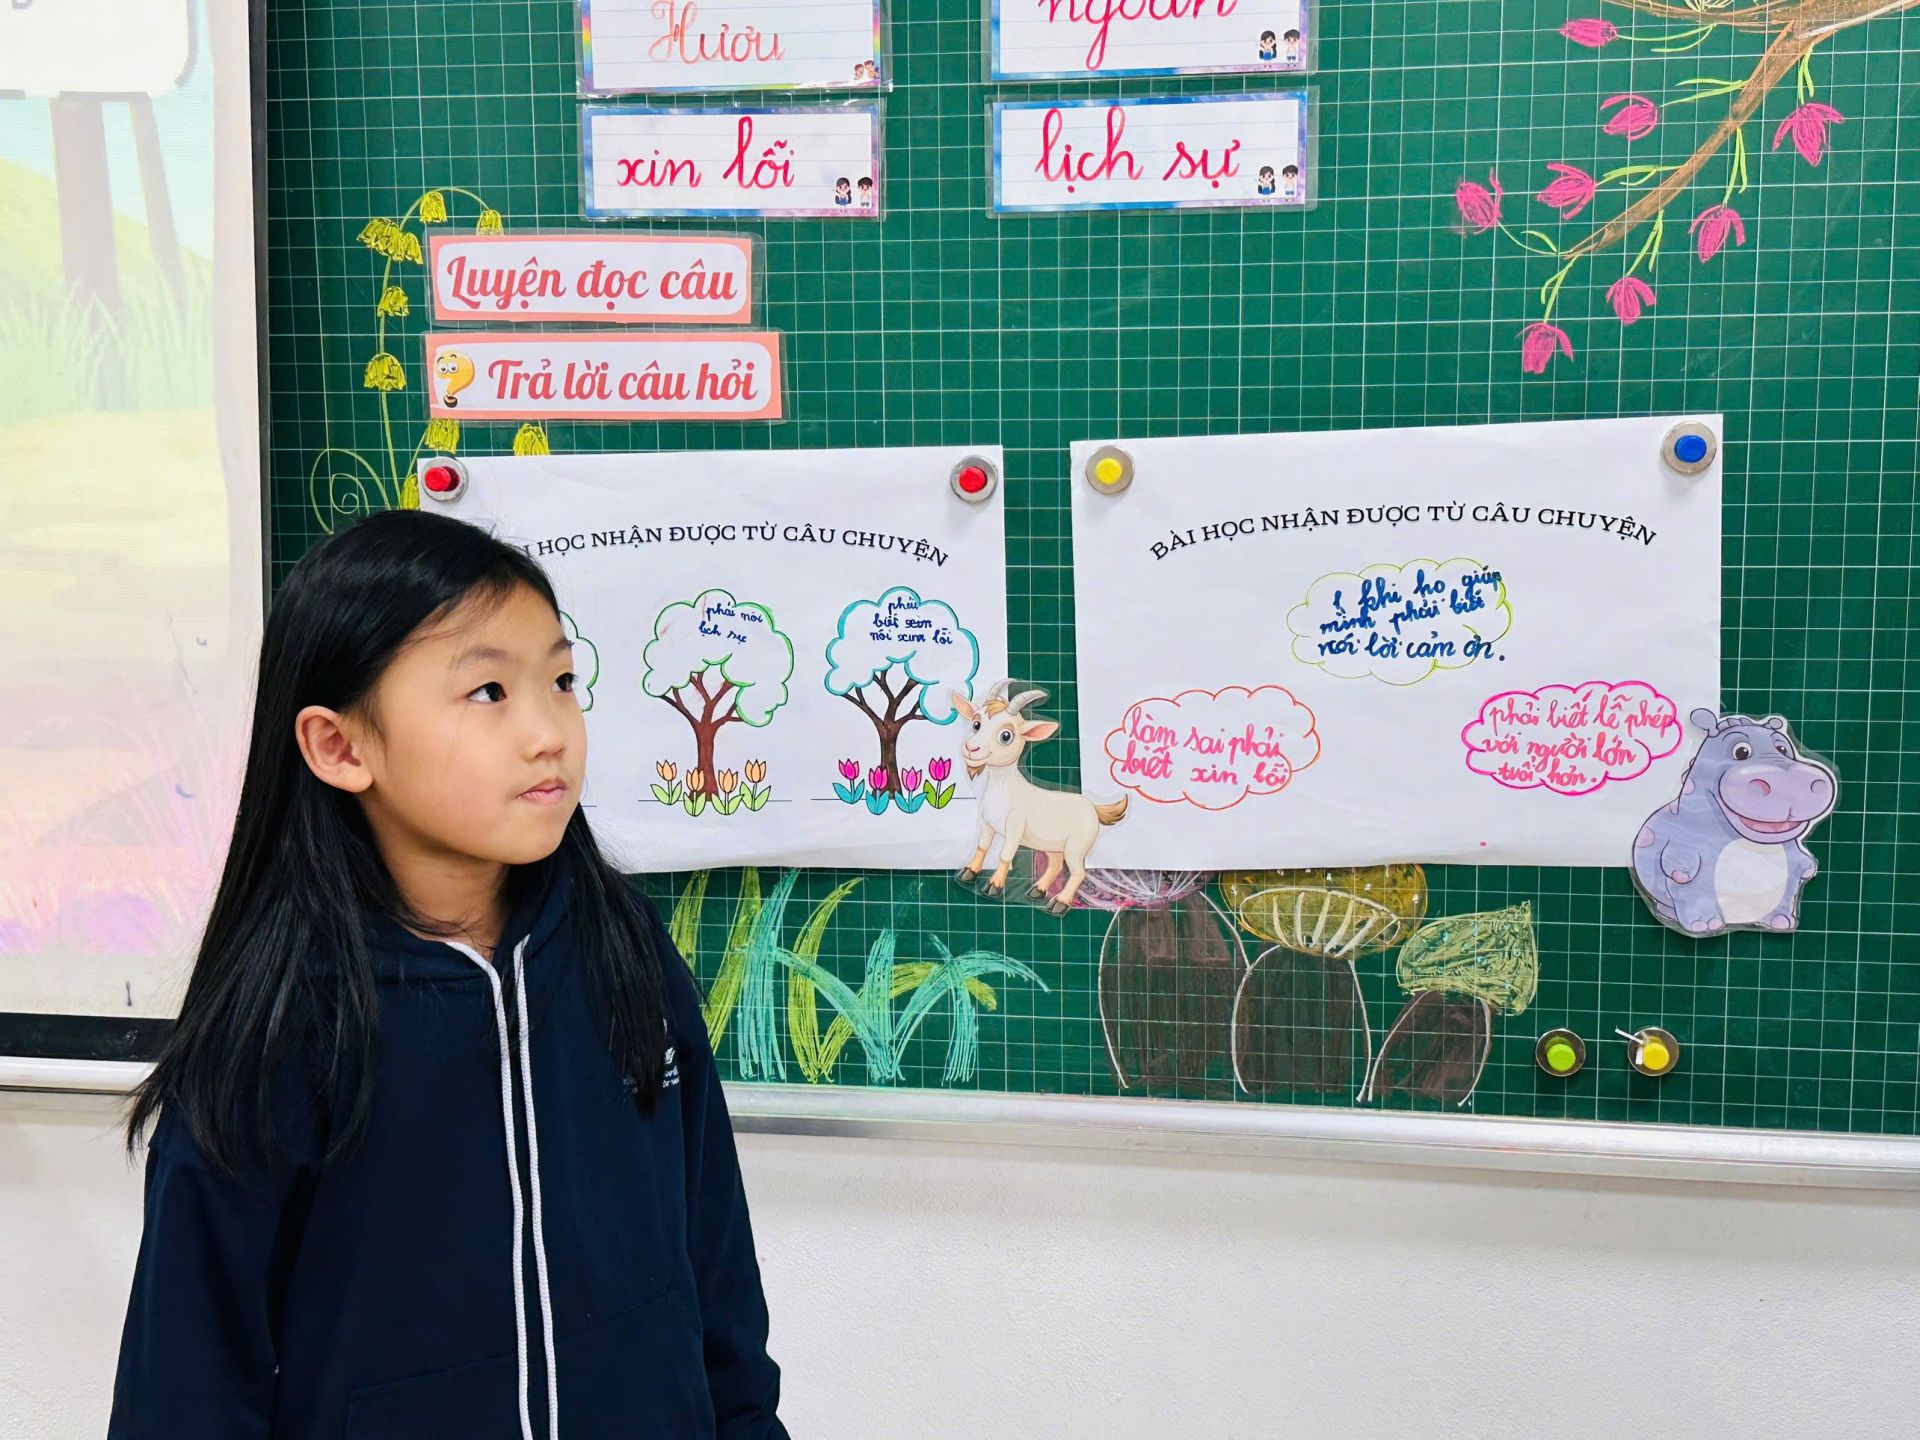 Hươu
ngoan
xin lỗi
lịch sự
Luyện đọc câu
Trả lời câu hỏi
HỌC NHẬN ĐƯỢC TỪ CÂU CHUYỆN
phải nói
lịch sự
phải
biết xem
nói xin lỗi
BÀI HỌC NHẬN ĐƯỢC TỪ CÂU CHUYỆN
khi họ giúp
mình phải biết
nói lời cảm ơn.
làm sai phải
biết xin lỗi
phải biết lễ phép
với người lớn
tuổi hơn.